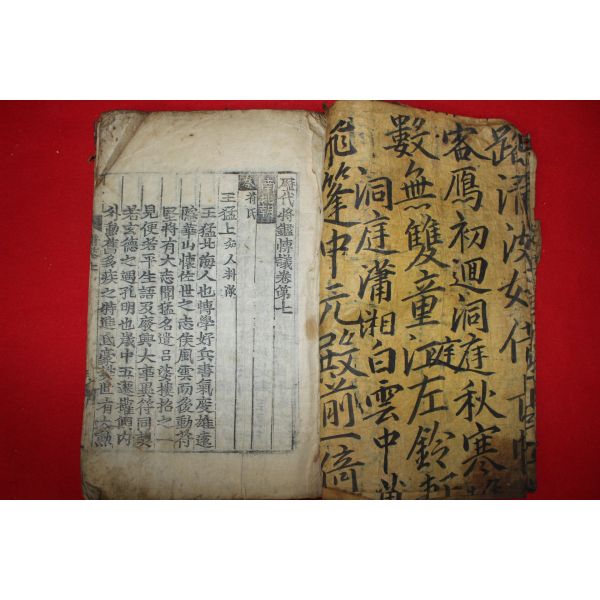 清波女
客鴈初迴洞庭秋寒
數無雙童江左鈴
洞庭瀟湘白雲中
中元殿前一倚
歷代將鑑博議卷第七
秦 苻氏
王猛上 知人料敵
王猛北海人也博學好兵書氣度雄遠
隱華山懷佐世之志侯風雲而後動苻
堅將有大志聞猛名遣呂婆樓招之一
見便若平生語及廢興大事異符同契
若玄德之遇孔明也歲中五遷權傾內
外勳舊多疾之特進氐豪樊世有大勲